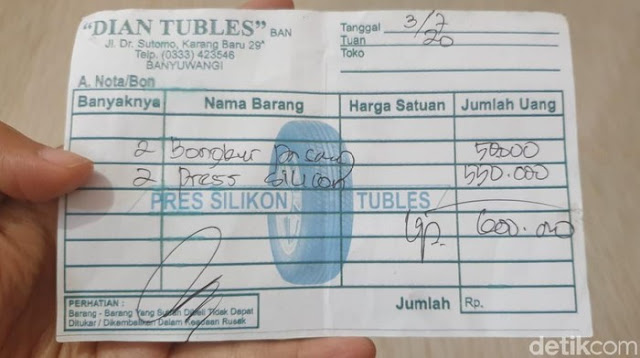 "DIAN TUBLES" BAN
Jl. Dr. Sutomo, Karang Baru 29"
Telp. (0333) 423546
BANYUWANGI
Tanggal 3/7
Tuan 20
Toko
A. Nota/Bon
Banyaknya Nama Barang Harga Satuan Jumlah Uang
2 Bongkar 50000
2 Press Silikon 550.000
PRES SILIKON TUBLES
Rp. 600.000
Jumlah Rp.
PERHATIAN :
Barang - Barang Yang Sudah Dibeli Tidak Dapat
Ditukar / Dikembalikan Dalam Keadaan Rusak
detikcom